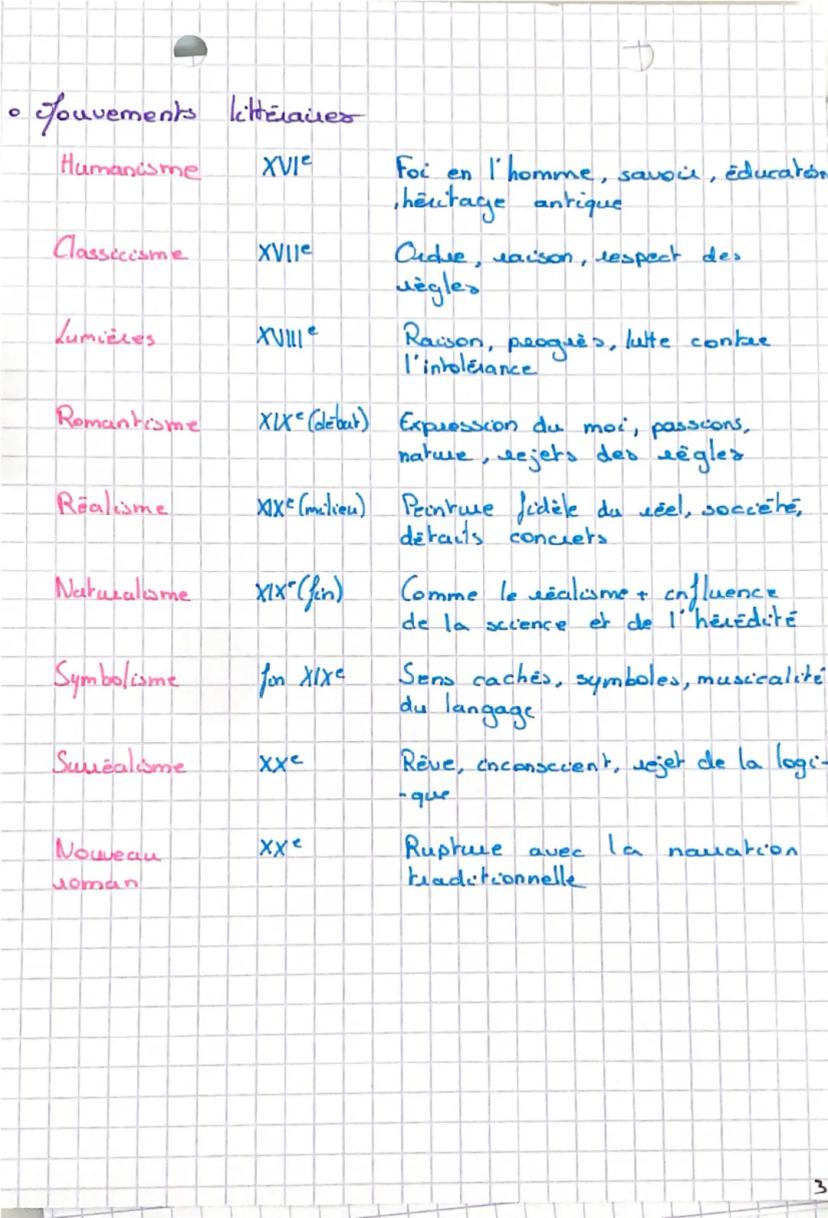 Mouvements littéraires
Humanisme XVIe Foi en l'homme, savoir, éducation
, héritage antique
Classicisme XVIIe Ordre, raison, respect des
règles
Lumières XVIIIe Raison, progrès, lutte contre
l'intolérance
Romantisme XIXe (début) Expression du moi, passions,
nature, rejets des règles
Réalisme XIXe (milieu) Peinture fidèle du réel, socciété,
détails concrets
Naturalisme XIXe (fin) Comme le réalisme + influence
de la science et de l'hérédité
Symbolisme fin XIXe Sens cachés, symboles, musicalité
du langage
Surréalisme XXe Rêve, inconscient, rejet de la logi-
-que
Nouveau XXe Rupture avec la narration
roman traditionnelle
3